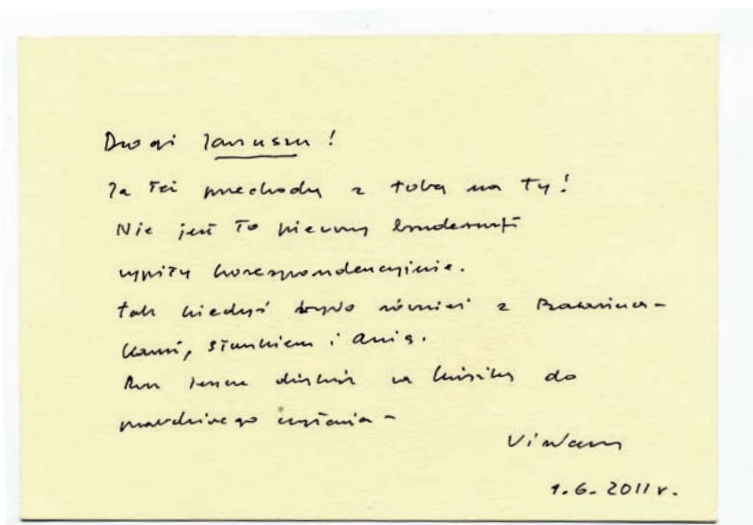 Drogi Januszu!
Ja też przechodzę z tobą na Ty!
Nie jest to pierwszy bruderszaft
wypity korespondencyjnie.
tak kiedyś było również z Barańcza-
kami, Stankiem i Anią.
Raz jeszcze dzięki za książkę do
prawdziwego czytania –
1.6.2011 r.